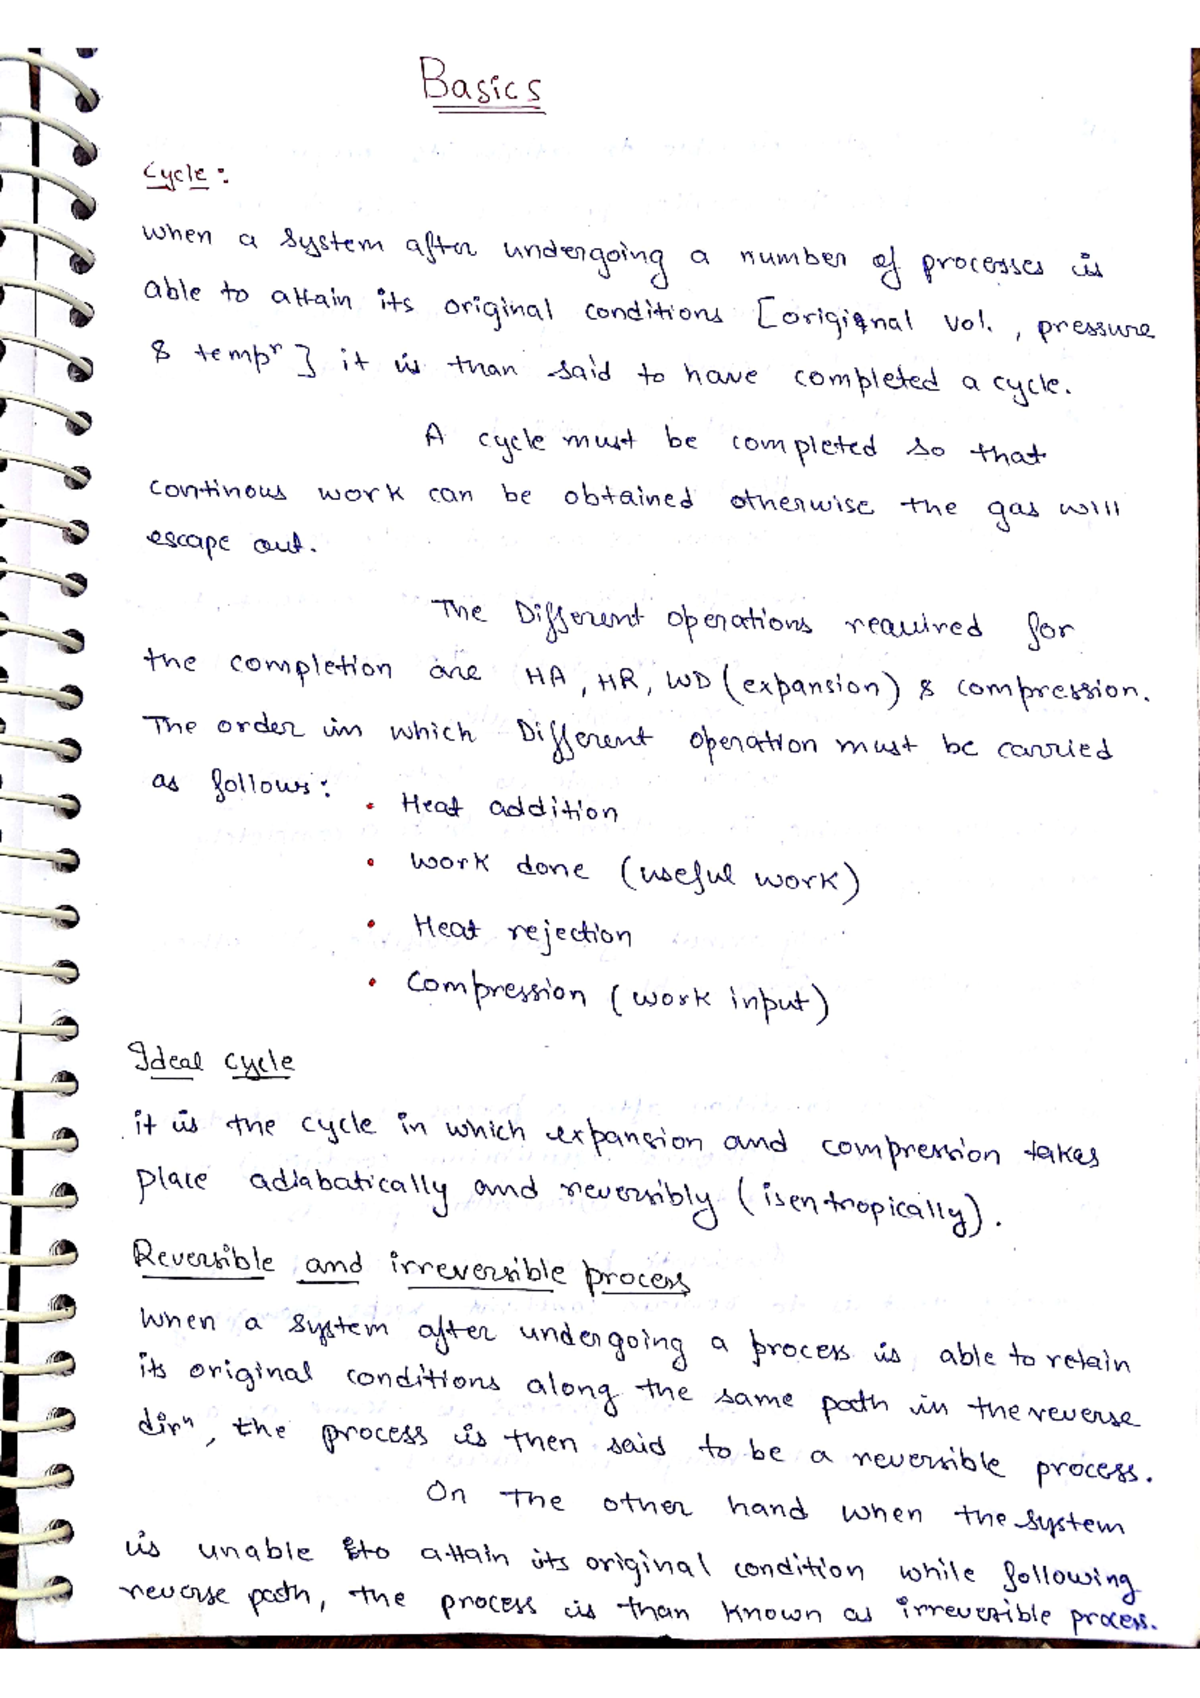 Basics
Cycle:
when a system after undergoing a number of processes is
able to attain its original conditions [origignal vol. , pressure
& tempr] it is than said to have completed a cycle.
A cycle must be completed so that
continous work can be obtained otherwise the gas will
escape out.
The Different operations required for
the completion are HA, HR, WD (expansion) & compression.
The order in which Different operation must be carried
as follows:
• Heat addition
• work done (useful work)
• Heat rejection
• Compression (work input)
Ideal cycle
it is the cycle in which expansion and compression takes
place adiabatically and reversibly (isentropically).
Reversible and irreversible process
When a system after undergoing a process is able to retain
its original conditions along the same path in the reverse
dirn, the process is then said to be a reversible process.
On the other hand when the system
is unable to attain its original condition while following
reverse path, the process is than known as irreversible process.